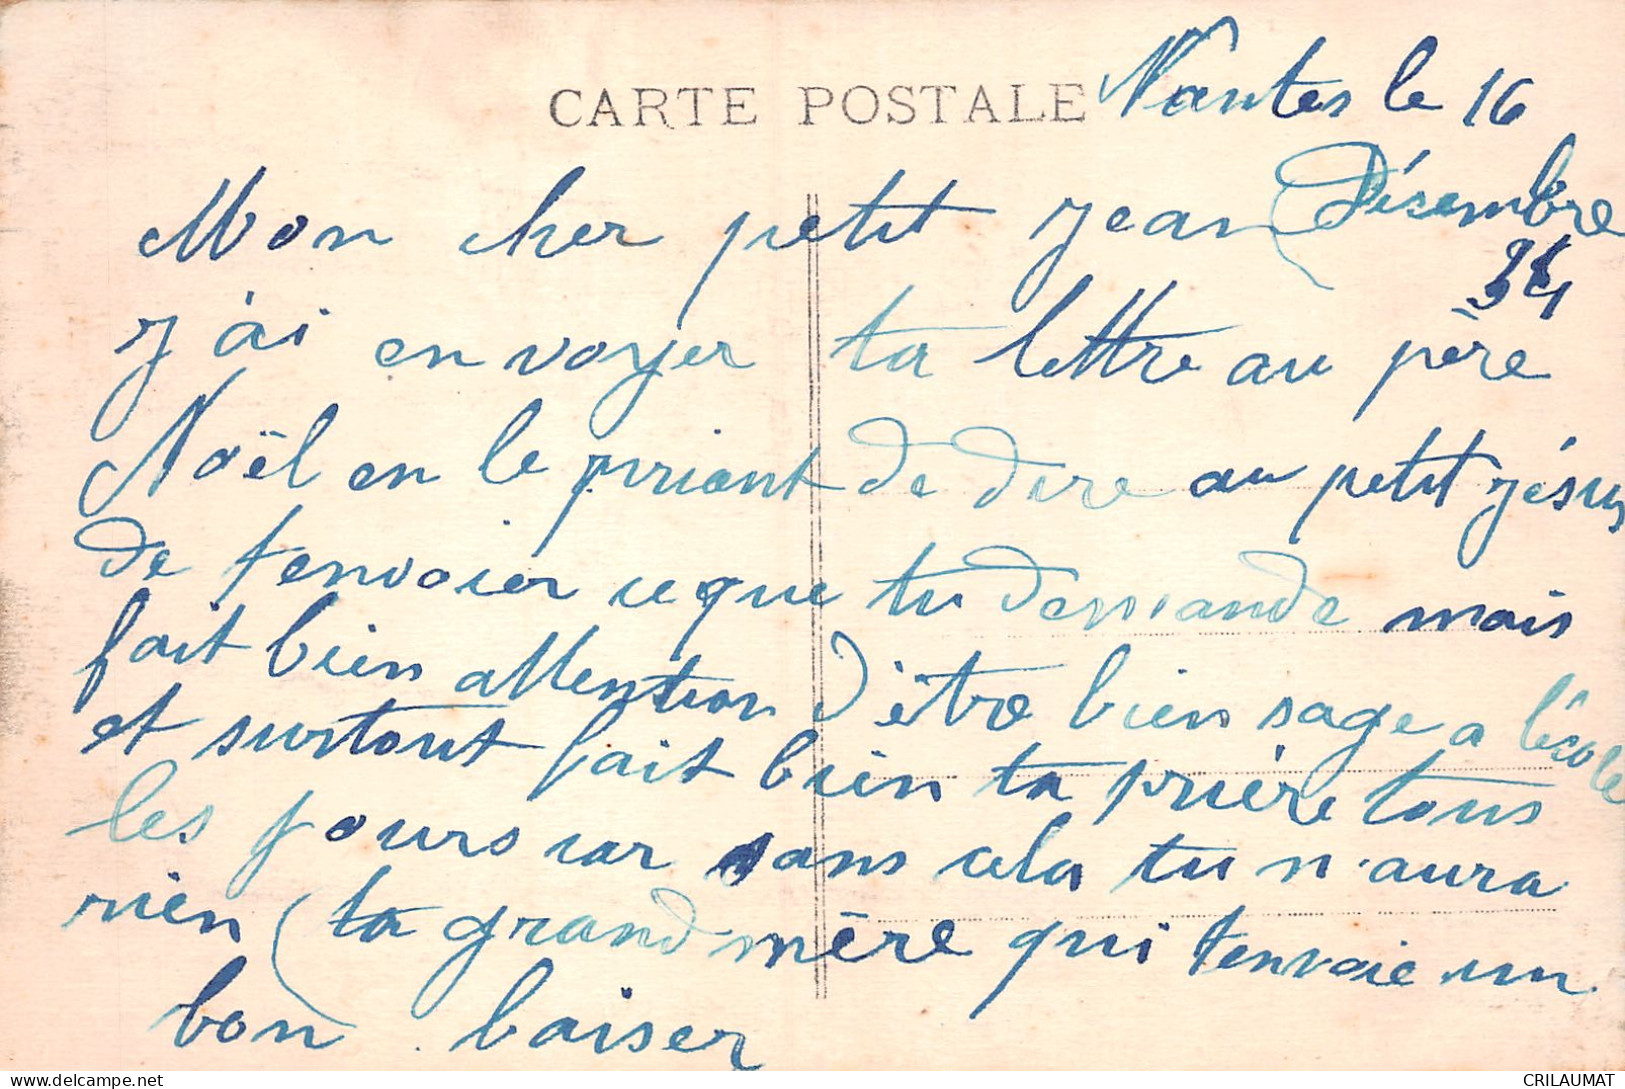 CARTE POSTALE
Nantes le 16
Désembre
34
Mon cher petit jean
j'ai envoyer ta lettre au père
Noël en le priant de dire au petit jésus
de t'envoier ce que tu demande mais
fait bien attention d'être bien sage a l'école
et surtout fait bien ta prière tous
les jours car sans cela tu n'aura
rien (ta grand mère qui t'envoie un
bon baiser
delcampe.net
CRILAUMAT